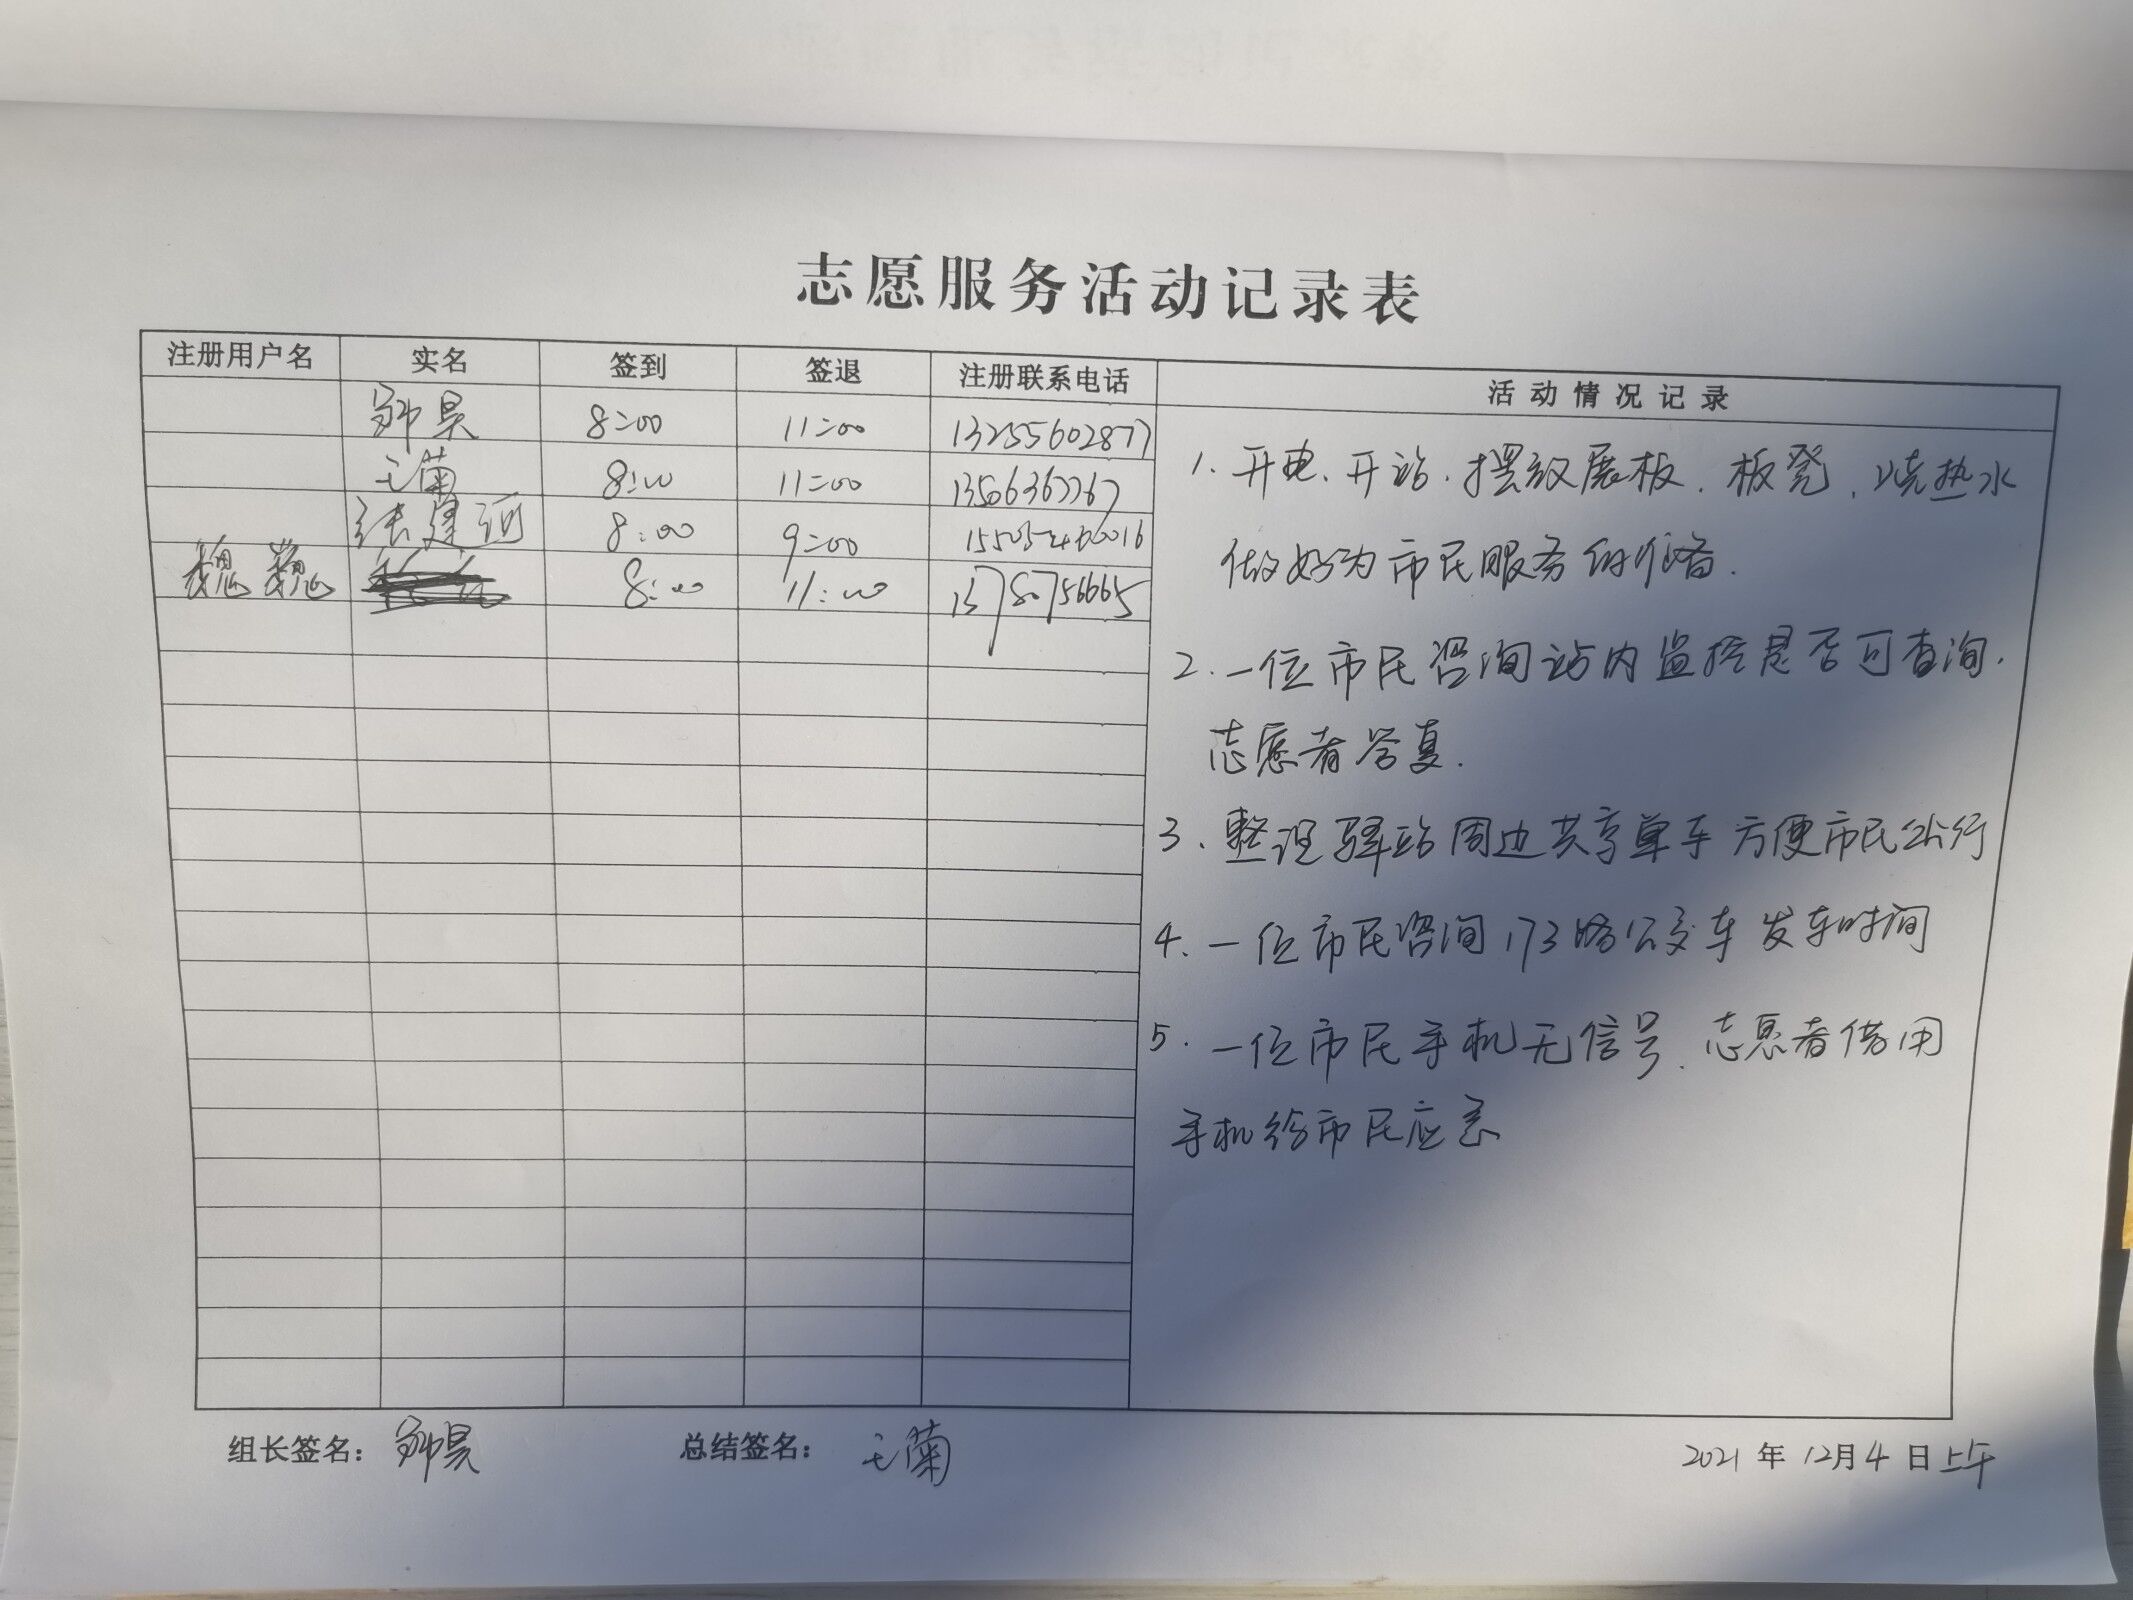 志愿服务活动记录表
注册用户名 实名 签到 签退 注册联系电话 活动情况记录
昊 8:00 11:00 13255602877
王菊 8:00 11:00 13506367767
张建河 8:00 9:00
魏巍 8:00 11:00 13780756665
1. 开电、开站、摆放展板、板凳、烧热水
做好为市民服务的准备.
2. 一位市民咨询站内监控是否可查询.
志愿者答复.
3. 整理驿站周边共享单车 方便市民出行
4. 一位市民咨询173路公交车发车时间
5. 一位市民手机无信号、志愿者借用
手机给市民应急
组长签名： 昊 总结签名： 王菊
2021 年 12月 4 日上午